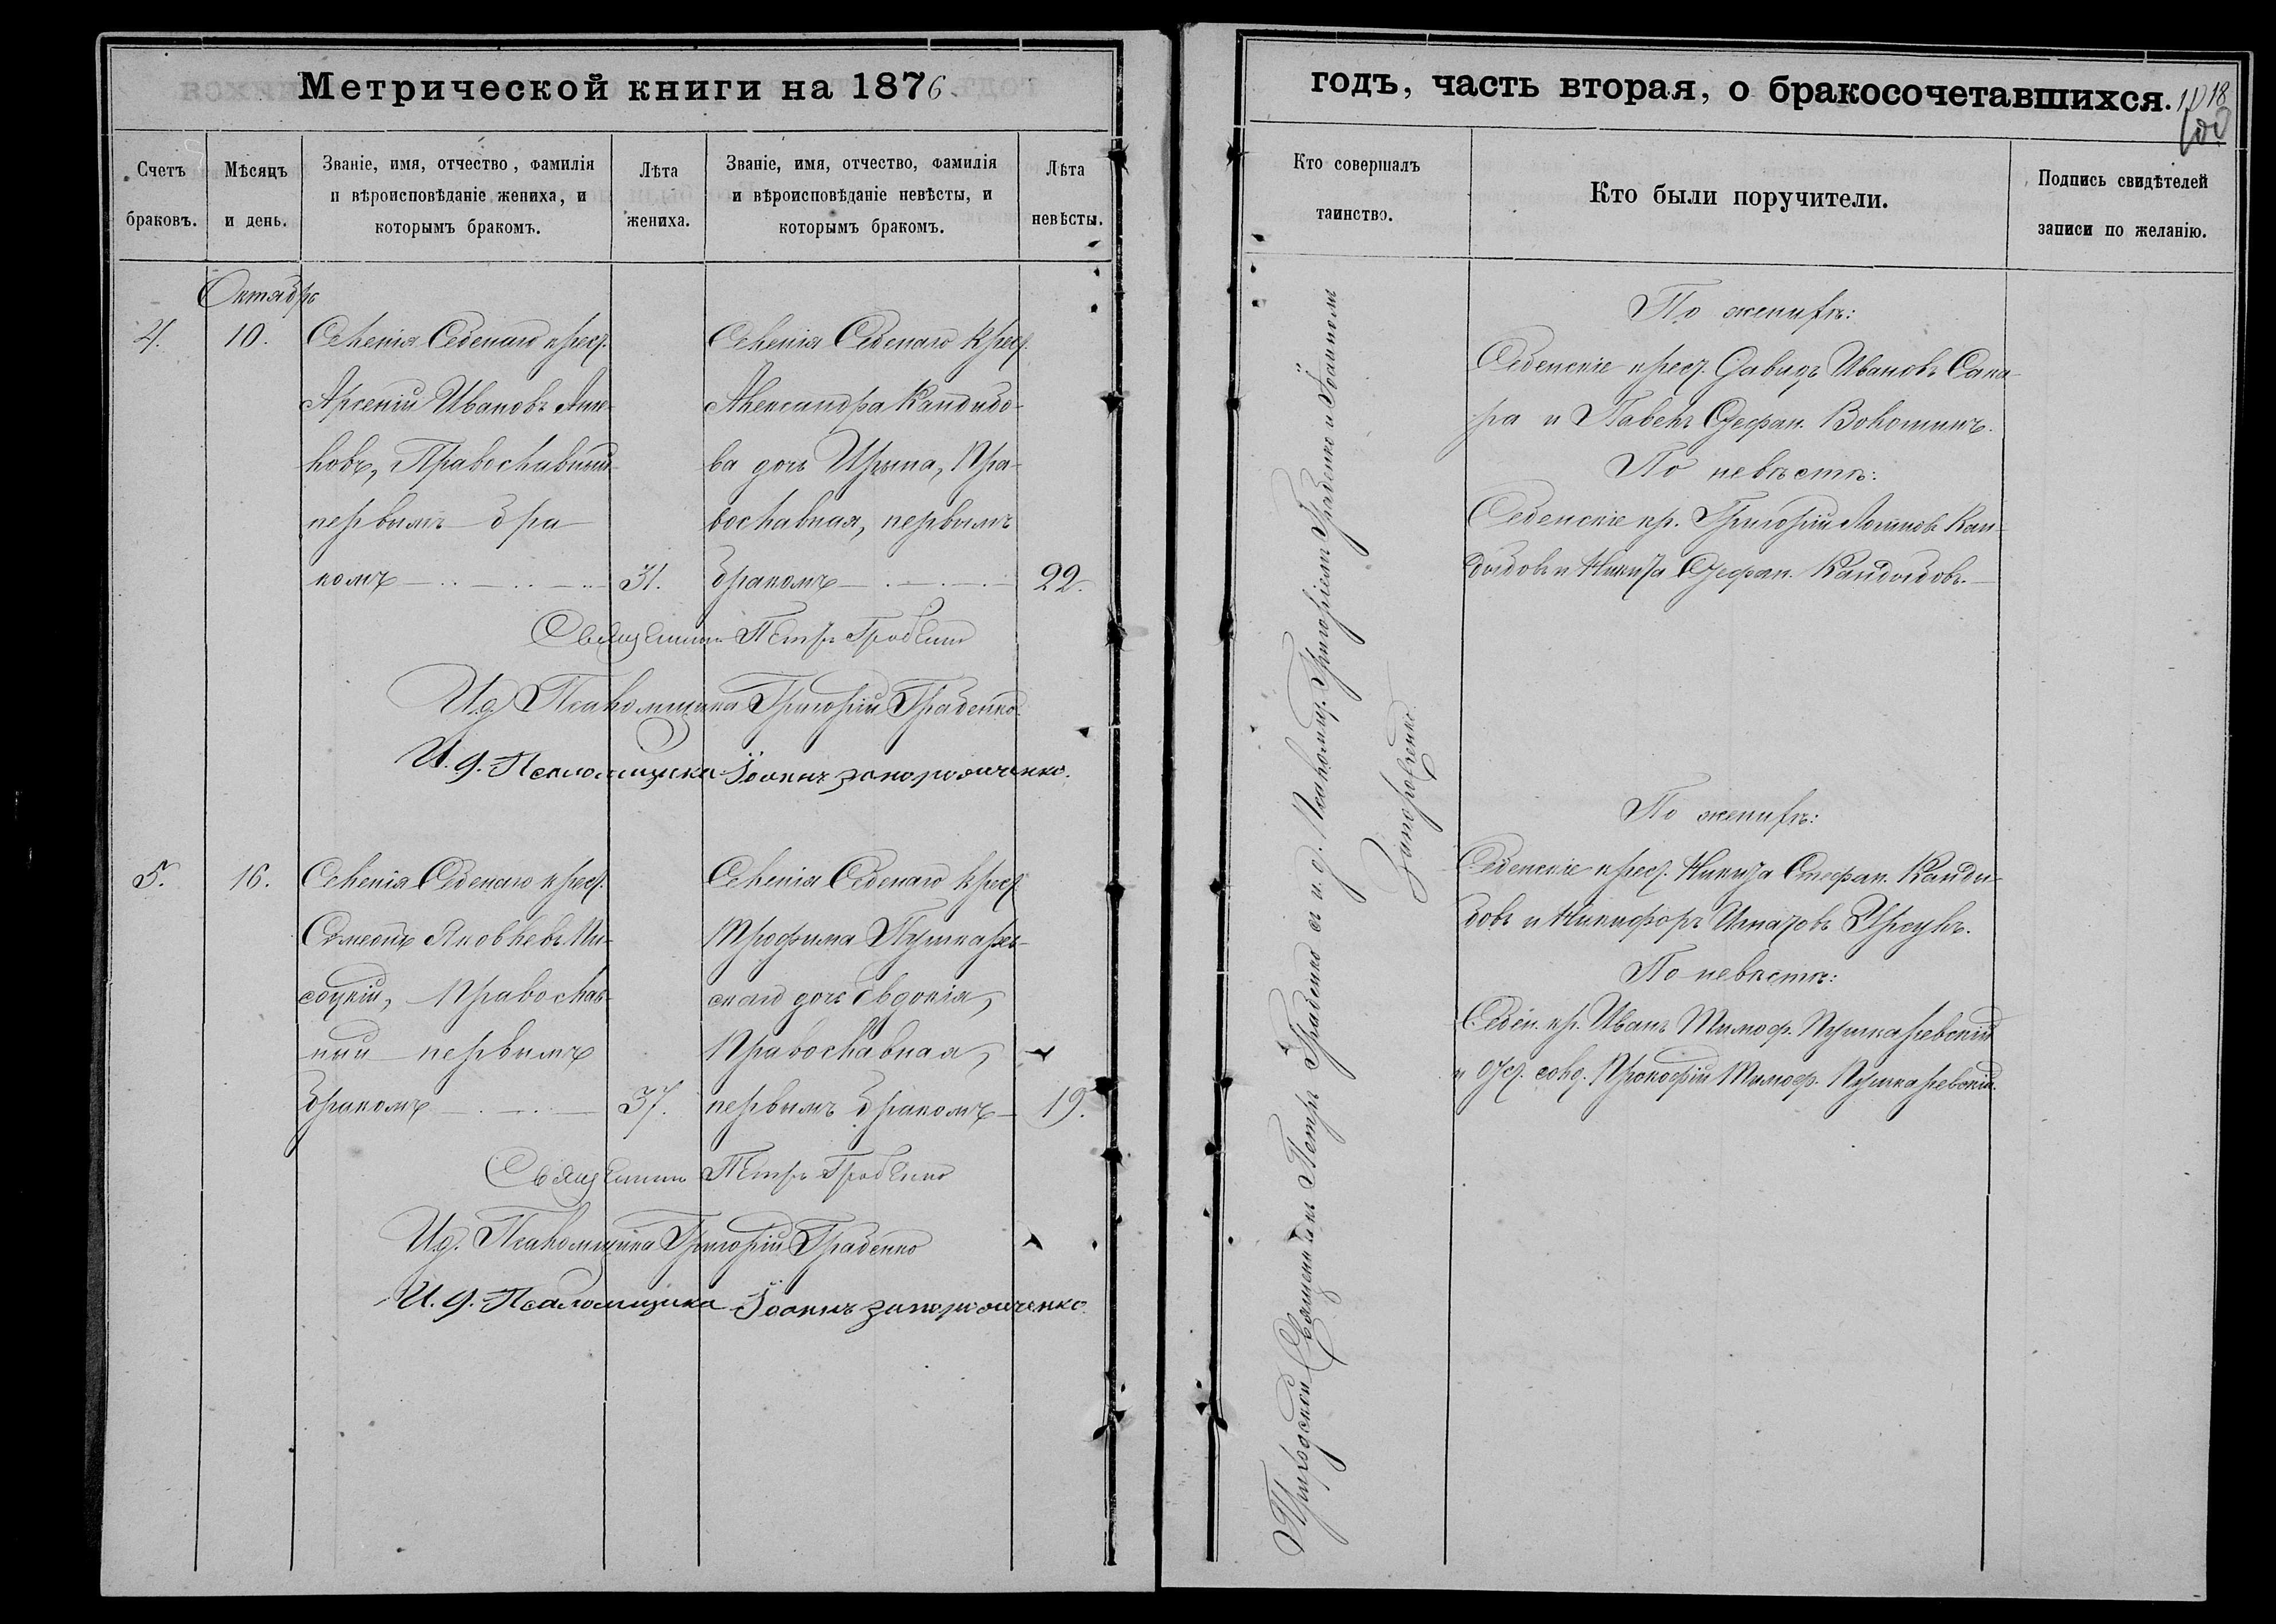 Метрической книги на 1876
годъ, часть вторая, о бракосочетавшихся.
Счетъ браковъ.
Мѣсяцъ и день.
Званіе, имя, отчество, фамилія
и вѣроисповѣданіе жениха, и
которымъ бракомъ.
Лѣта
жениха.
Званіе, имя, отчество, фамилія
и вѣроисповѣданіе невѣсты, и
которымъ бракомъ.
Лѣта
невѣсты.
Кто совершалъ
таинство.
Кто были поручители.
Подпись свидѣтелей
записи по желанію.
Октябрь
4.
10.
Селенія Седенаго крест.
Арсеній Ивановъ
Православный
первымъ бра-
комъ
31.
Селенія Седенаго крест.
Александра Кандыбо-
ва дочь Ирина, Пра-
вославная, первымъ
бракомъ
22.
Священникъ Петръ Грабенко
И.д. Псаломщика Григорій Грабенко
И.д. Псаломщика Іоаннъ Запорожченко.
5.
16.
Селенія Седенаго крест.
Симеонъ Яковлевъ Пи-
соцкій, Православ-
ный первымъ
бракомъ
37.
Селенія Седенаго крест.
Трофима Пушкарев-
скаго дочь Евдокія,
Православная,
первымъ бракомъ
19.
Священникъ Петръ Грабенко
И.д. Псаломщика Григорій Грабенко
И.д. Псаломщика Іоаннъ Запорожченко.
Приходской Священникъ Петръ Грабенко съ и.д. Псаломщ. Григоріемъ Грабенко и Іоанномъ
По женихѣ:
Седенскіе крест. Давидъ Ивановъ Сака-
ра и Павелъ Стефан. Волошинъ.
По невѣстѣ:
Седенскіе кр. Григорій Логиновъ Кан-
дыбовъ и Никита Стефан. Кандыбовъ.
По женихѣ:
Седенскіе крест. Никита Стефан. Канды-
бовъ и Никифоръ Игнатовъ Урсулъ.
По невѣстѣ:
Седен. кр. Иванъ Тимоф. Пушкаревскій
и отст. солд. Прокофій Тимоф. Пушкаревскій.